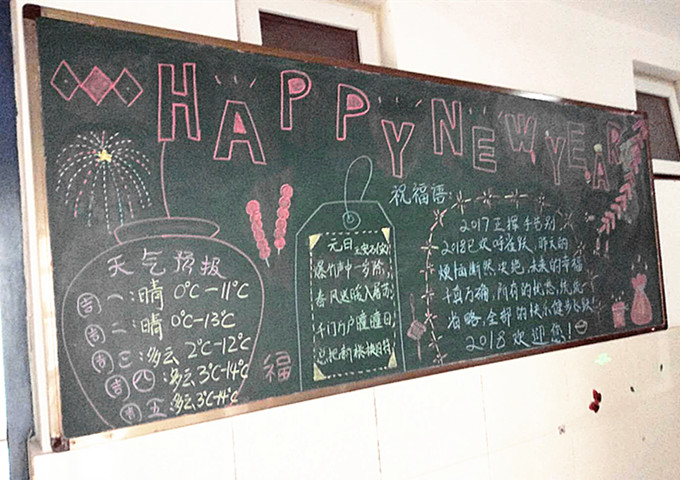 HAPPY NEW YEAR
天气预报
周一:晴 0℃-11℃
周二:晴 0℃-13℃
周三:多云 2℃-12℃
周四:多云 3℃-14℃
周五:多云 3℃-14℃
福
元日 王安石(宋)
爆竹声中一岁除,
春风送暖入屠苏,
千门万户曈曈日
总把新桃换旧符
祝福语:
2017正挥手告别
2018已欢呼在跃,昨天的
烦恼断然决绝,未来的幸福
千真万确,所有的忧愁
省略,全部的快乐
2018欢迎您!